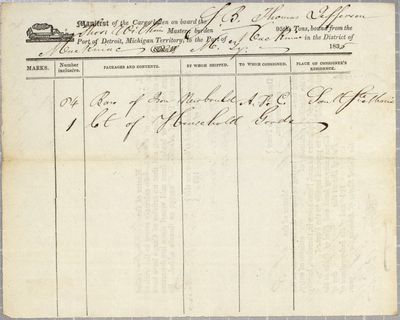 Manifest of the Cargo taken on board the S. B. Thomas Jefferson
Thos Wilkins Master, burden Tons, bound from the
Port of Detroit, Michigan Territory, to the Port of Mackinac in the District of
Mackinac 183
MARKS. Number inclusive. PACKAGES AND CONTENTS. BY WHOM SHIPPED. TO WHOM CONSIGNED. PLACE OF CONSIGNEE'S RESIDENCE.
84 Bars of Iron Newbould A. F. C. Sault Ste Marie
1 Ct of Household Goods